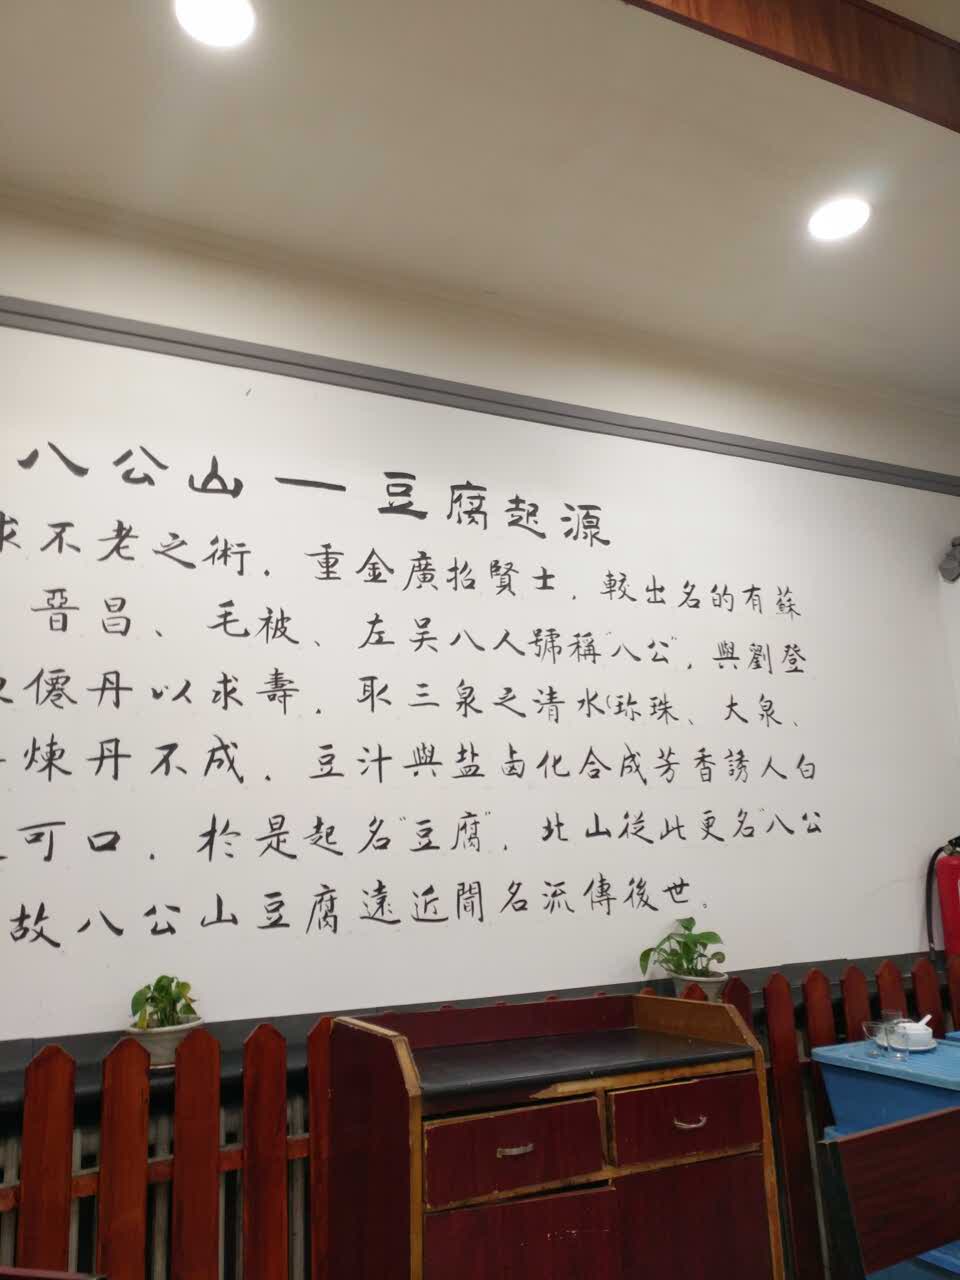 八公山一豆腐起源
求不老之術．重金廣招賢士．較出名的有蘇
晉昌、毛被、左吴八人號稱"八公"．與劉登
僊丹以求壽．取三泉之清水(珍珠、大泉、
煉丹不成．豆汁與盐卤化合成芳香誘人白
可口．於是起名"豆腐"．北山從此更名"八公
故八公山豆腐遠近聞名流傳後世。